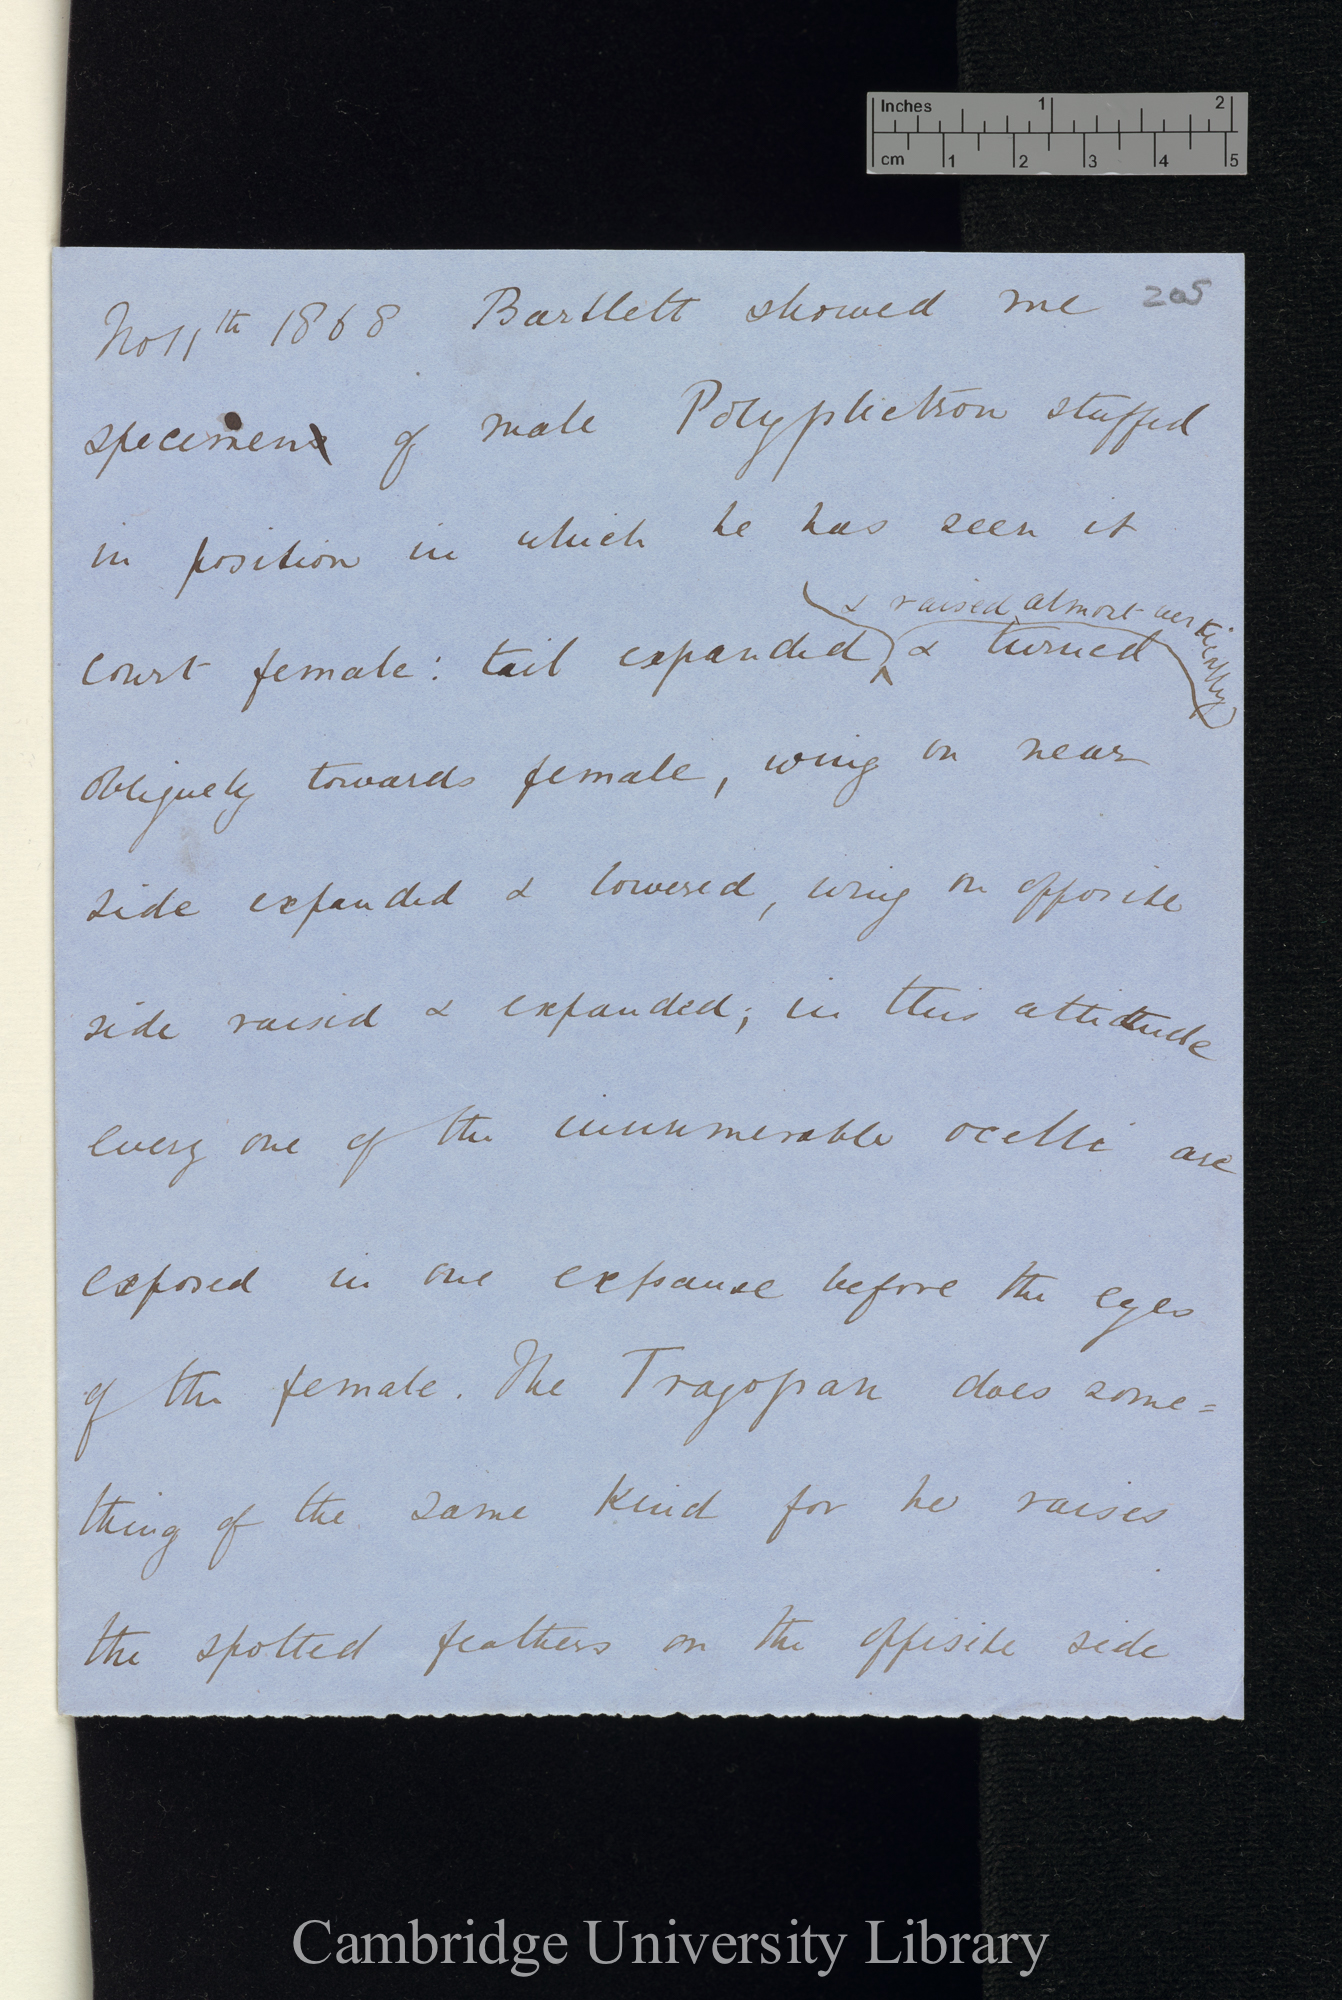 Inches 1 2
cm 1 2 3 4 5
205
Nov 11th 1868 Bartlett showed me
specimen of male Polyplictron stuffed
in position in which he has seen it
& raised almost vertically
court female: tail expanded, & turned
obliquely towards female, wing on near
side expanded & lowered, wing on opposite
side raised & expanded; in this attitude
every one of the innumerable ocelli are
exposed in one expanse before the eyes
of the female. The Tragopan does some=
thing of the same kind for he raises
the spotted feathers on the opposite side
Cambridge University Library